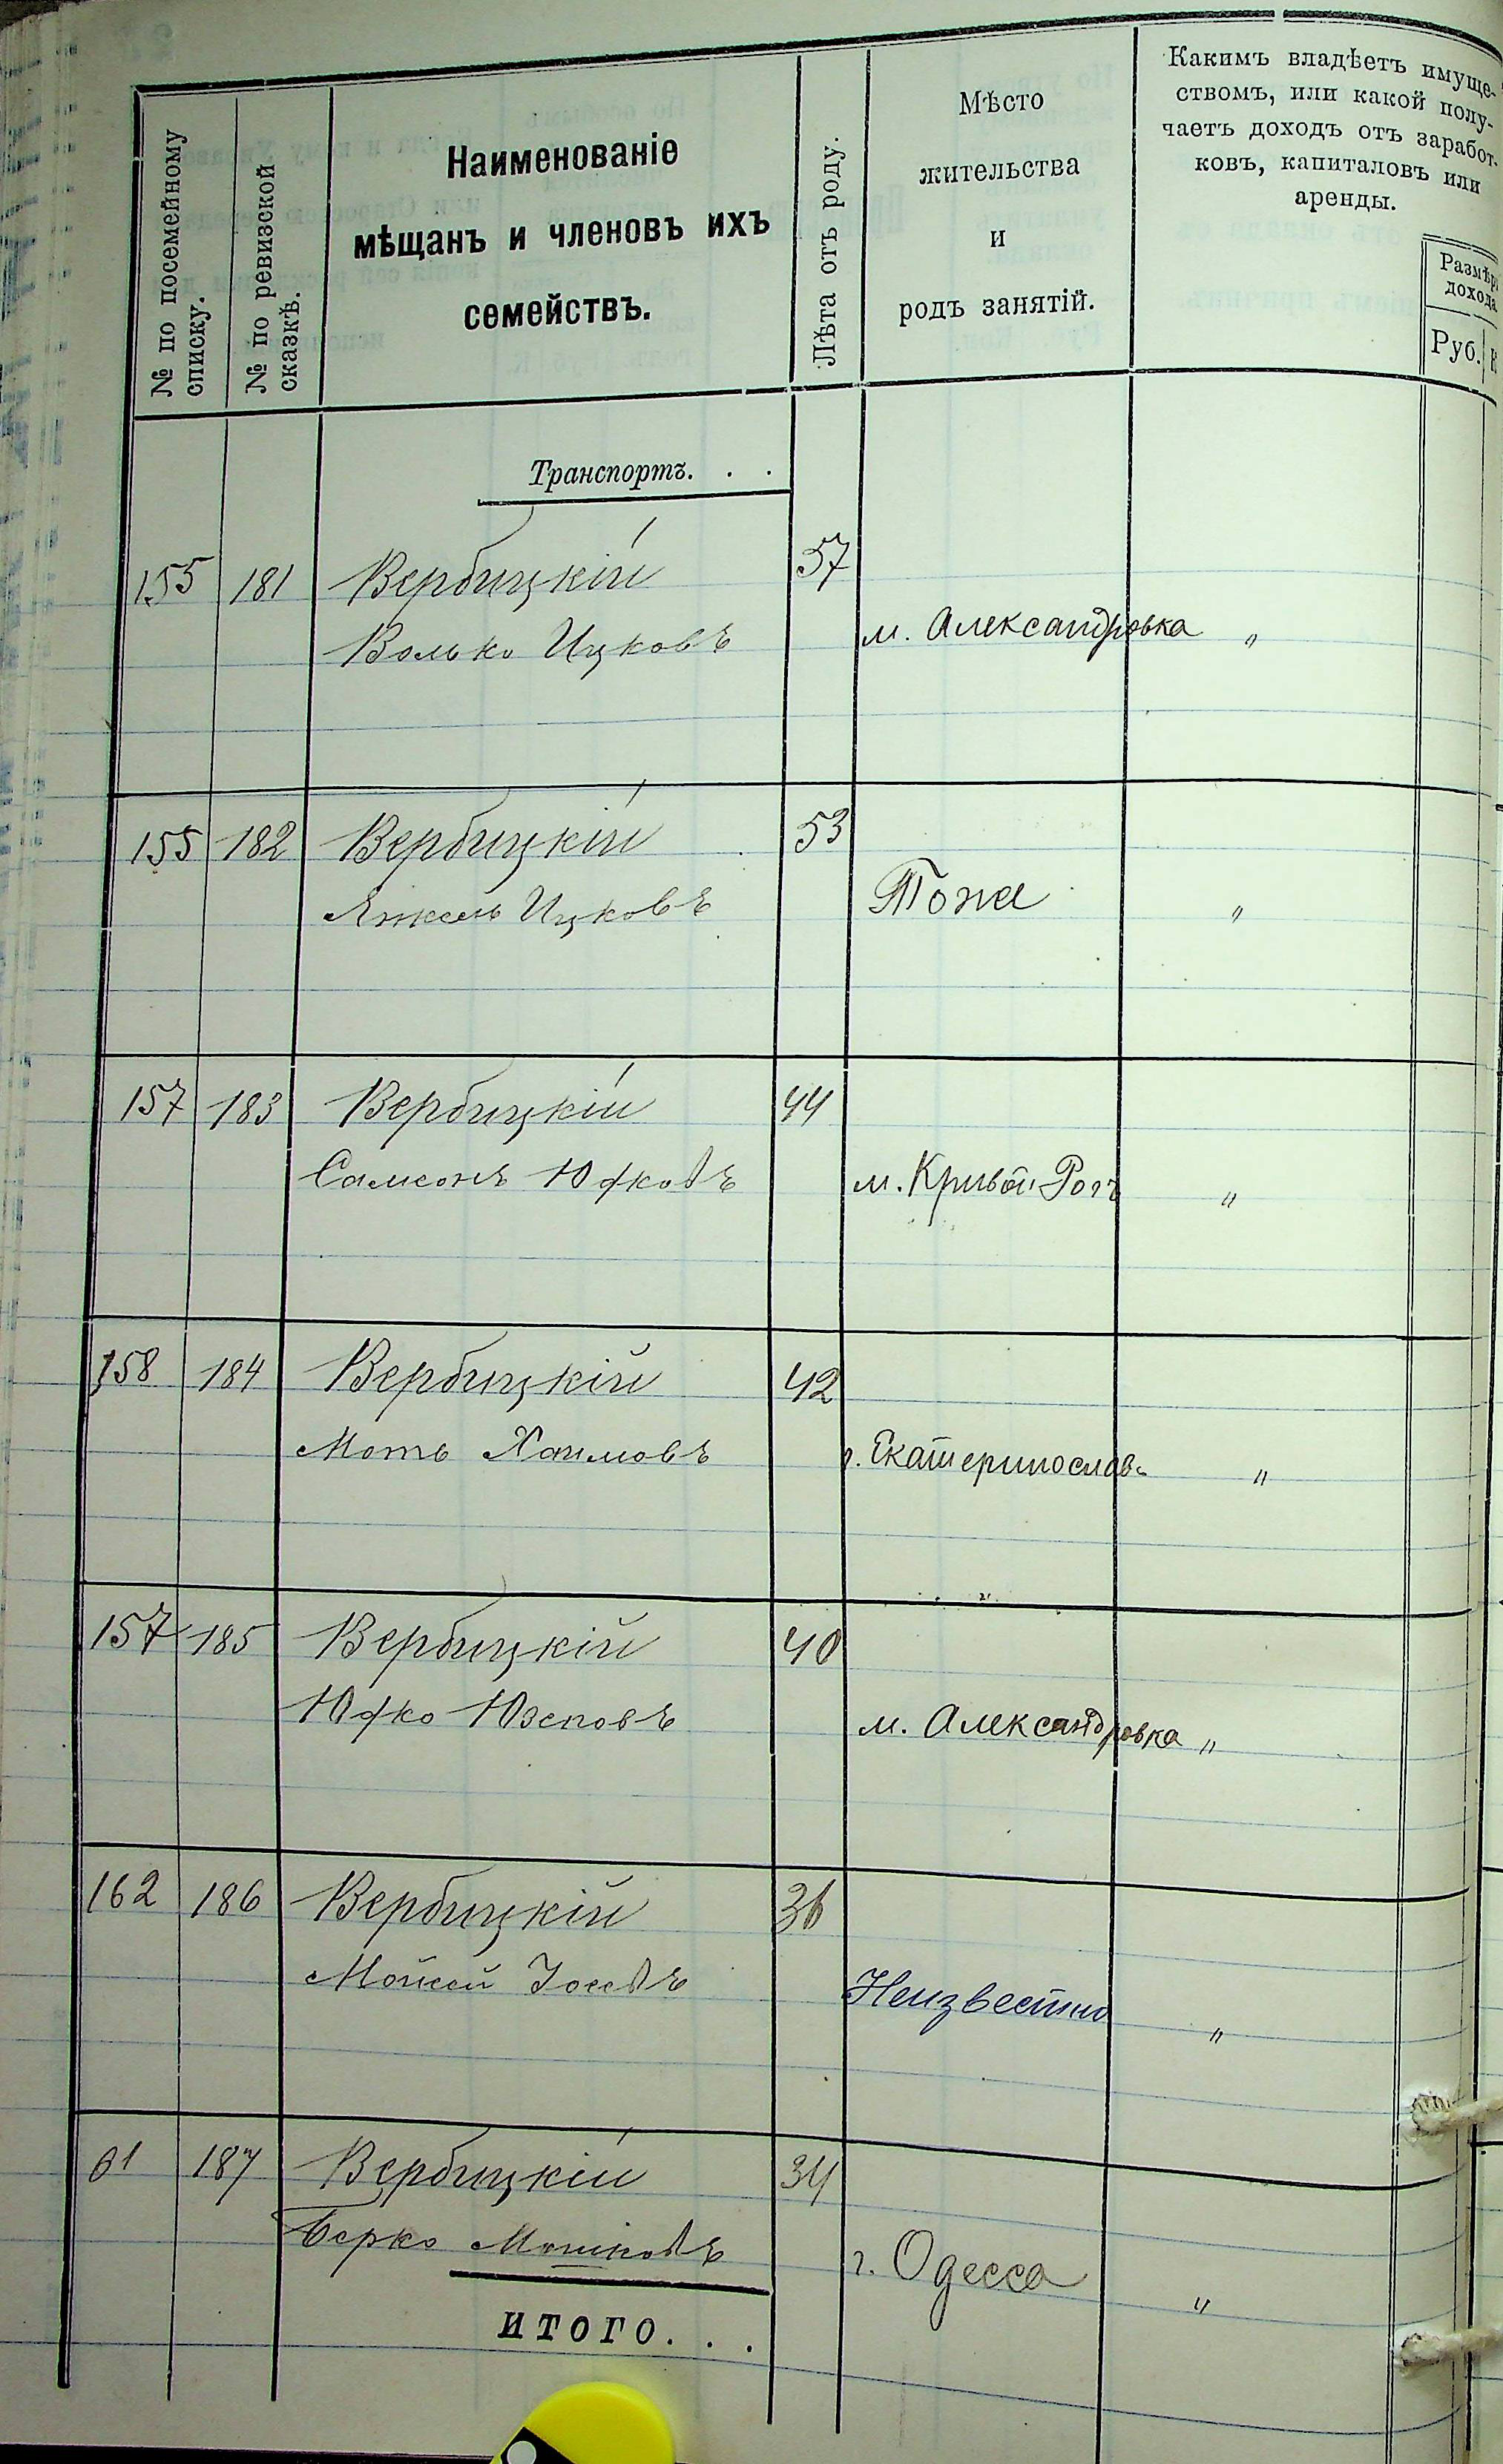 № по посемейному
списку.
№ по ревизской
сказкѣ.
Наименованіе
мѣщанъ и членовъ ихъ
семействъ.
Лѣта отъ роду.
Мѣсто
жительства
и
родъ занятій.
Какимъ владѣетъ имуще-
ствомъ, или какой полу-
чаетъ доходъ отъ заработ-
ковъ, капиталовъ или
аренды.
Размѣръ
дохода
Руб.
Транспортъ. . .
155 181 Вербицкій 57
Волько Ицковъ м. Александровка "
155 182 Вербицкій 53
Янкель Ицковъ Тоже "
157 183 Вербицкій 44
Самсонъ Юфковъ м. Кривой Рогъ "
158 184 Вербицкій 42
Моть Хаимовъ г. Екатеринославъ "
157 185 Вербицкій 40
Юфко Юзеповъ м. Александровка "
162 186 Вербицкій 36
Мойсей Іосевъ Неизвестно "
61 187 Вербицкій 34
Берко Мошковъ г. Одесса "
ИТОГО. . .